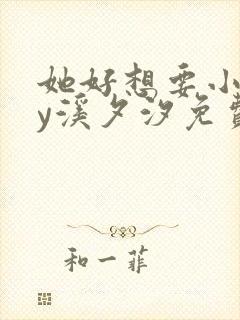 她好想要小
y溪夕汐免费
和一菲